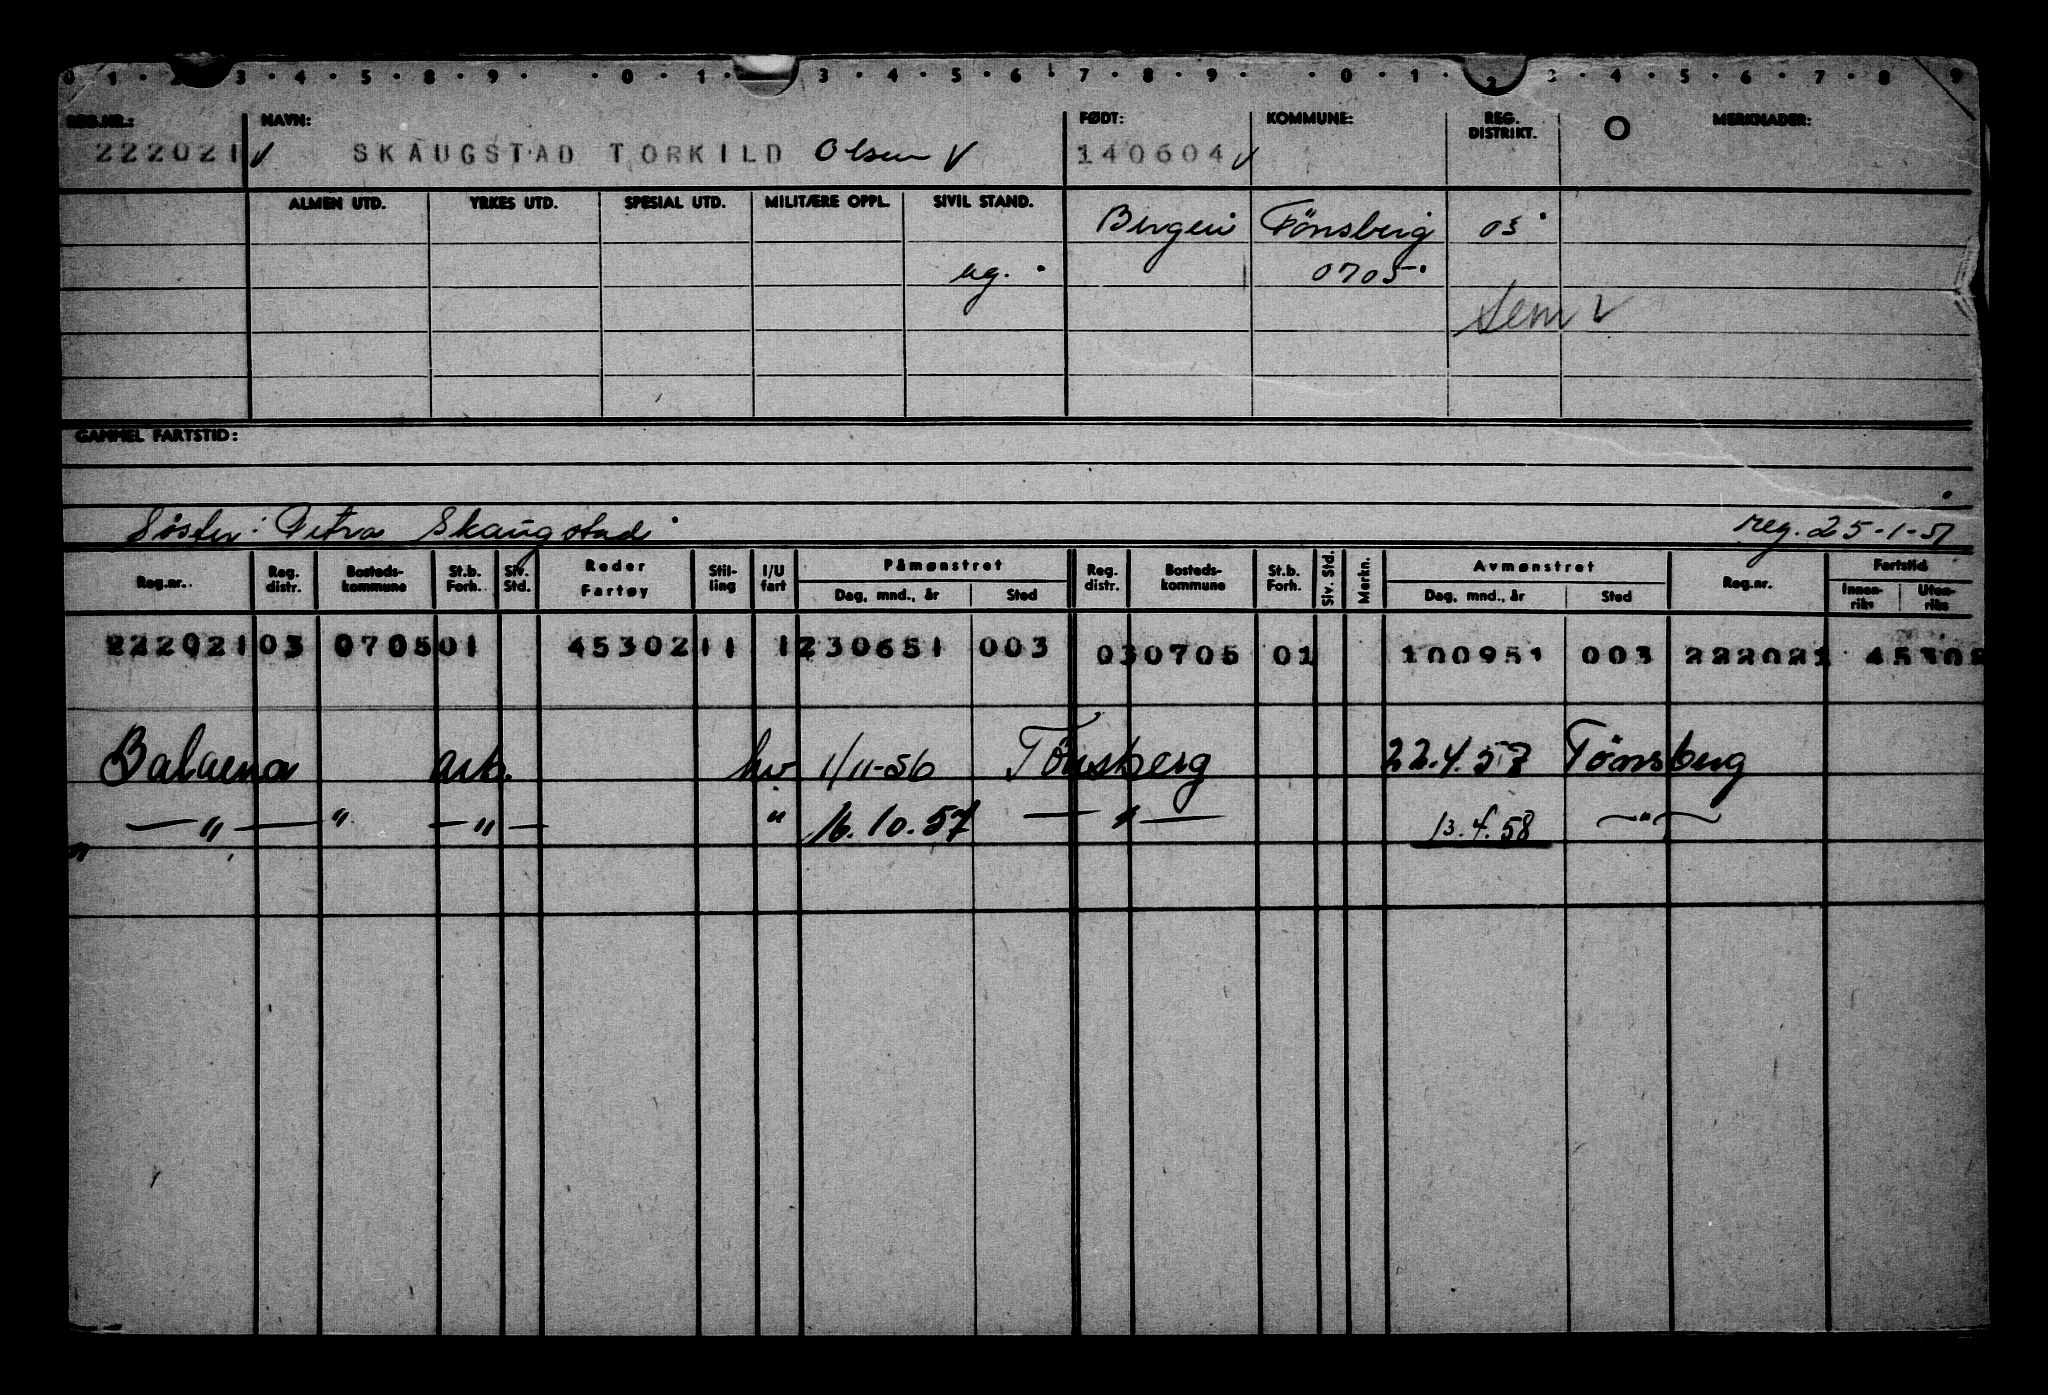 0 1 · 2 3 · 4 · 5 · 8 · 9 · · 0 · 1 · 3 · 4 · 5 · 6 · 7 · 8 · 9 · · 0 · 1 · 2 3 · 4 · 5 · 6 · 7 · 8 9
REG.NR.: NAVN: FØDT: KOMMUNE: REG. DISTRIKT. O MERKNADER:
222021 V SKAUGSTAD TORKILD Olsen V 140604 V
ALMEN UTD. YRKES UTD. SPESIAL UTD. MILITÆRE OPPL. SIVIL STAND. Bergen Tönsberg 03
ug. 0705
Sem V
GAMMEL FARTSTID:
Söster: Petra Skaugstad reg. 25-1-51
Reg.nr. Reg. distr. Bosteds-kommune St.b. Forh. Siv. Std. Reder Fartøy Stil-ling I/U fart Påmønstret Dag, mnd., år Sted Reg. distr. Bosteds-kommune St.b. Forh. Siv. Std. Merkn. Avmønstret Dag, mnd., år Sted Reg.nr. Fartstid Innen-riks Uten-riks
222021 03 0705 01 45302 11 1 230651 003 03 0705 01 100951 003 222021 45302
Balaena arb. hv 1/11-56 Tönsberg 22.4.57 Tönsberg
— " — " — " — " 16.10.57 — " — 13.4.58 — " —